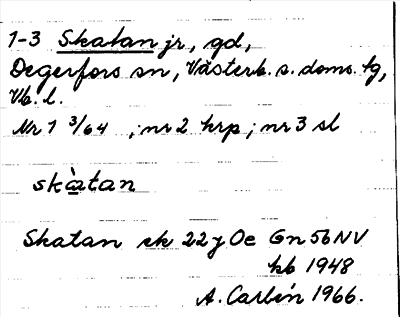 1-3 Skatan jr, gd,
Degerfors sn, Västerb. s. doms. tg,
Vb. l.
Nr 1 3/64 ; nr 2 krp ; nr 3 sl
skàtan
Skatan ek 22 y Oe Gn 56 NV
kb 1948
A. Carlén 1966.